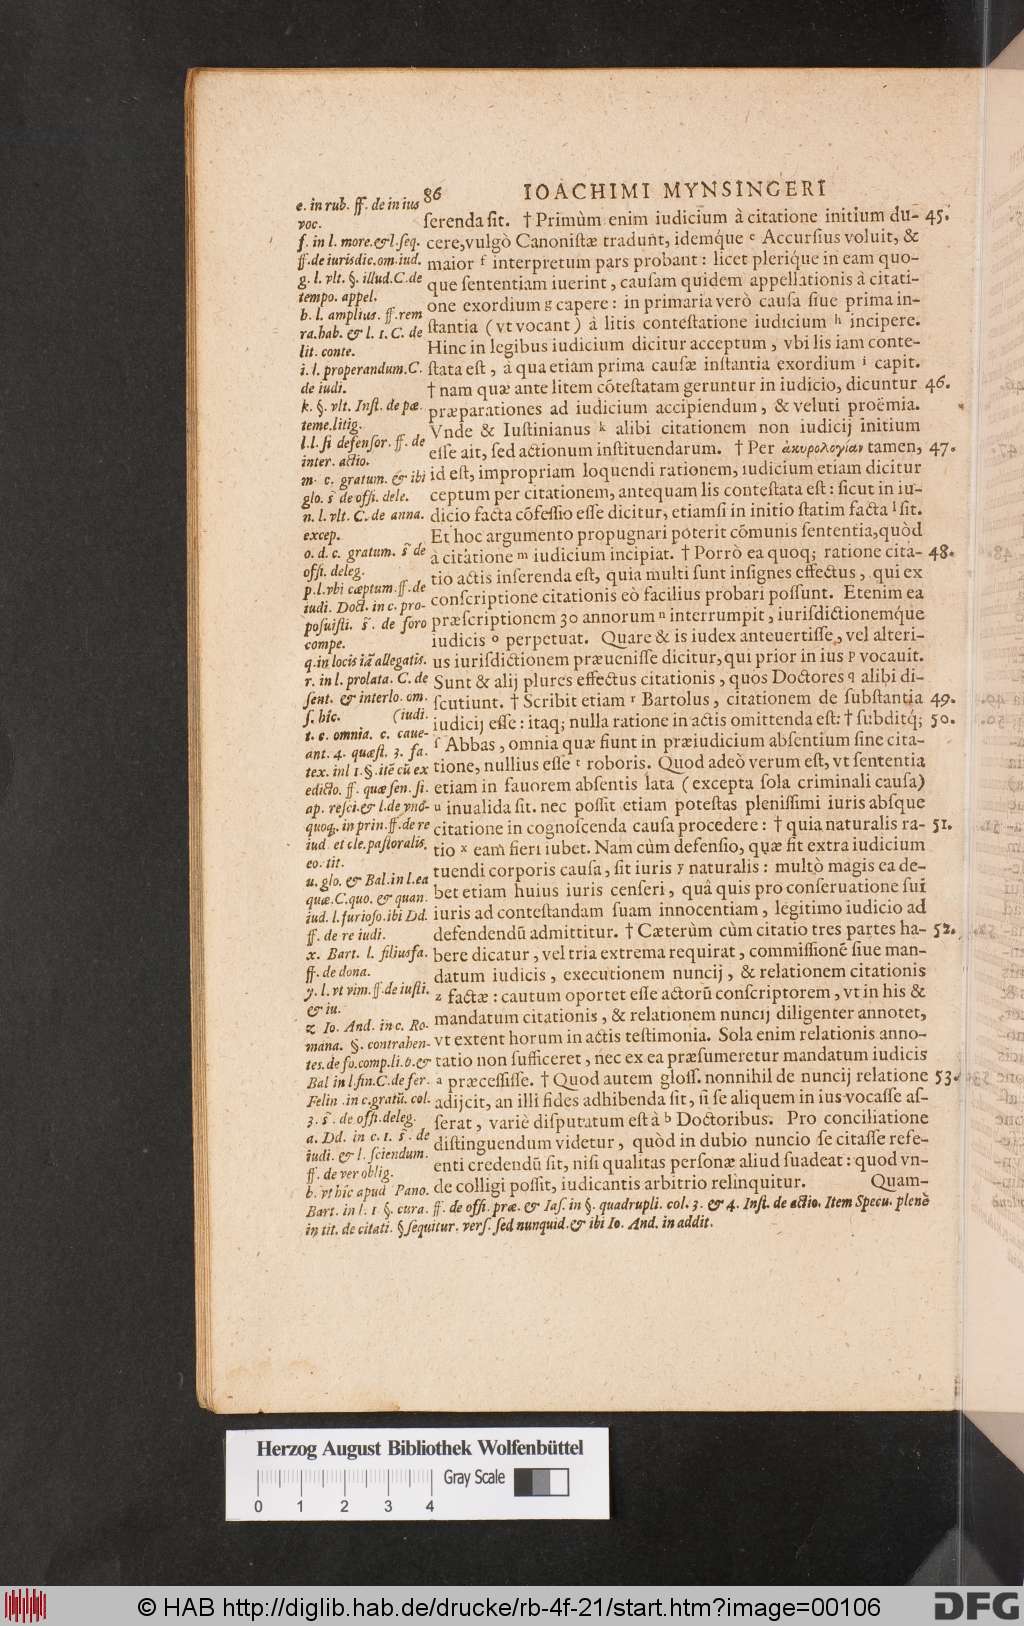 86
IOACHIMI MYNSINGERI
ſerenda ſit. † Primùm enim iudicium à citatione initium du- 45.
cere, vulgò Canoniſtæ tradunt, idemq́ue e Accurſius voluit, &
maior f interpretum pars probant: licet pleriq́ue in eam quo-
que ſententiam iuerint, cauſam quidem appellationis à citati-
one exordium g capere: in primaria verò cauſa ſiue prima in-
ſtantia (vt vocant) à litis conteſtatione iudicium h incipere.
Hinc in legibus iudicium dicitur acceptum, vbi lis iam conte-
ſtata eſt, à qua etiam prima cauſæ inſtantia exordium i capit.
† nam quæ ante litem cõteſtatam geruntur in iudicio, dicuntur 46.
præparationes ad iudicium accipiendum, & veluti proëmia.
Vnde & Iuſtinianus k alibi citationem non iudicij initium
eſſe ait, ſed actionum inſtituendarum. † Per ἀκυρολογίαν tamen, 47.
id eſt, impropriam loquendi rationem, iudicium etiam dicitur
ceptum per citationem, antequam lis conteſtata eſt: ſicut in iu-
dicio facta cõfeſſio eſſe dicitur, etiamſi in initio ſtatim facta l ſit.
Et hoc argumento propugnari poterit cõmunis ſententia, quòd
à citatione m iudicium incipiat. † Porrò ea quoq; ratione cita- 48.
tio actis inſerenda eſt, quia multi ſunt inſignes effectus, qui ex
conſcriptione citationis eò facilius probari poſſunt. Etenim ea
præſcriptionem 30 annorum n interrumpit, iuriſdictionemq́ue
iudicis o perpetuat. Quare & is iudex anteuertiſſe, vel alteri-
us iuriſdictionem præueniſſe dicitur, qui prior in ius p vocauit.
Sunt & alij plures effectus citationis, quos Doctores q alibi di-
ſcutiunt. † Scribit etiam r Bartolus, citationem de ſubſtantia 49.
iudicij eſſe: itaq; nulla ratione in actis omittenda eſt: † ſubditq́; 50.
ſ Abbas, omnia quæ fiunt in præiudicium abſentium ſine cita-
tione, nullius eſſe t roboris. Quod adeò verum eſt, vt ſententia
etiam in fauorem abſentis lata (excepta ſola criminali cauſa)
u inualida ſit. nec poſſit etiam poteſtas pleniſſimi iuris abſque
citatione in cognoſcenda cauſa procedere: † quia naturalis ra- 51.
tio x eam fieri iubet. Nam cùm defenſio, quæ fit extra iudicium
tuendi corporis cauſa, ſit iuris y naturalis: multò magis ea de-
bet etiam huius iuris cenſeri, quâ quis pro conſeruatione ſui
iuris ad conteſtandam ſuam innocentiam, legitimo iudicio ad
defendendũ admittitur. † Cæterùm cùm citatio tres partes ha- 52.
bere dicatur, vel tria extrema requirat, commiſſionẽ ſiue man-
datum iudicis, executionem nuncij, & relationem citationis
z factæ: cautum oportet eſſe actorũ conſcriptorem, vt in his &
mandatum citationis, & relationem nuncij diligenter annotet,
vt extent horum in actis teſtimonia. Sola enim relationis anno-
tatio non ſufficeret, nec ex ea præſumeretur mandatum iudicis
a præceſſiſſe. † Quod autem gloſſ. nonnihil de nuncij relatione 53.
adijcit, an illi fides adhibenda ſit, ſi ſe aliquem in ius vocaſſe aſ-
ſerat, variè diſputatum eſt à b Doctoribus. Pro conciliatione
diſtinguendum videtur, quòd in dubio nuncio ſe citaſſe refe-
enti credendũ ſit, niſi qualitas perſonæ aliud ſuadeat: quod vn-
de colligi poſſit, iudicantis arbitrio relinquitur. Quam-
e. in rub. ff. de in ius
voc.
f. in l. more. & l. ſeq.
ff. de iurisdic. om. iud.
g. l. vlt. §. illud. C. de
tempo. appel.
h. l. amplius. ff. rem
ra. hab. & l. 1. C. de
lit. conte.
i. l. properandum. C.
de iudi.
k. §. vlt. Inſt. de pæ.
teme. litig.
l. l. ſi defenſor. ff. de
inter. actio.
m. c. gratum. & ibi
glo. s̃ de offi. dele.
n. l. vlt. C. de anna.
excep.
o. d. c. gratum. s̃ de
offi. deleg.
p. l. vbi cæptum. ff. de
iudi. Doct. in c. pro-
poſuiſti. s̃. de foro
compe.
q. in locis iã allegatis.
r. in l. prolata. C. de
ſent. & interlo. om.
ſ. hîc. (iudi.
t. c. omnia. c. caue-
ant. 4. quæſt. 3. fa.
tex. in l 1. §. itẽ cũ ex
edicto. ff. quæ ſen. ſi.
ap. reſci. & l. de vnõ-
quoq. in prin. ff. de re
iud et cle. paſtoralis.
eo. tit.
u. glo. & Bal. in l. ea
quæ. C. quo. & quan.
iud. l. furioſo. ibi Dd.
ff. de re iudi.
x. Bart. l. filiusfa.
ff. de dona.
y. l. vt vim. ff. de iuſti.
& iu.
z Io. And. in c. Ro-
mana. §. contrahen-
tes. de fo. comp. li. 6. &
Bal in l fin. C. de fer.
Felin. in c. gratũ. col.
3. s̃. de offi. deleg.
a. Dd. in c. 1. s̃. de
iudi. & l. ſciendum.
ff. de ver oblig.
b. vt hîc apud Pano.
Bart. in l. 1 §. cura. ff. de offi. præ. & Iaſ. in §. quadrupli. col. 3. & 4. Inſt. de actio. Item Specu. plenè
in tit. de citati. § ſequitur. verſ. ſed nunquid. & ibi Io. And. in addit.
Herzog August Bibliothek Wolfenbüttel
Gray Scale
0 1 2 3 4
© HAB http://diglib.hab.de/drucke/rb-4f-21/start.htm?image=00106
DFG